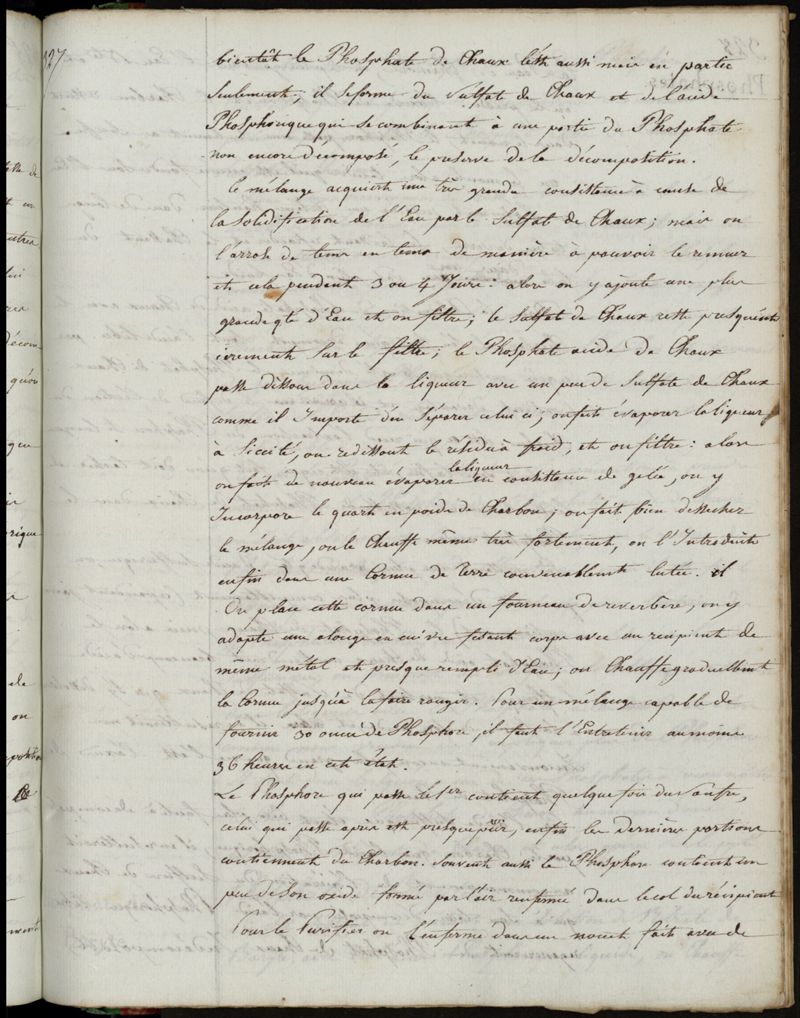 327
bientôt le Phosphate de Chaux l'est aussi mais en partie
seulement; il se forme du Sulfat de Chaux et de l'acide
Phosphorique qui se combinant à une portie du Phosphate
non encore décomposé, le preserve de la décomposition.
le mélange acquiert une très grande consistance à cause de
la Solidification de l'Eau par le Sulfat de Chaux; mais on
l'arrose de tems en tems de manière à pouvoir le remuer
et cela pendent 3 ou 4 Jours: alors on y ajoute une plus
grande qté d'Eau et on filtre; le Sulfat de Chaux reste presqu'ent
ierement sur le filtre; le Phosphate acide de Chaux
passe dissous dans la liqueur avec un peu de Sulfate de Chaux
comme il Importe d'en Séparer celui ci; on fait évaporer la liqueur
à Siccité, on redissout le résidu à froid, et on filtre: alors
la liqueur
on fait de nouveau évaporer en consistance de gelée, on y
Incorpore le quart en poids de Charbon; on fait bien dessecher
le mélange, on le Chauffe même très fortement, on l'Introduit
enfin dans une Cornue de Terre convenablemt lutée. il
On place cette cornue dans un fourneau de reverbère, on y
adapte une alonge en cuivre fesant corps avec un recipient de
même métal et presque rempli d'Eau; on Chauffe graduellemt
la Cornue jusqu'à la faire rougir. Pour un mélange capable de
fournir 30 onces de Phosphore, il faut l'Entretenir au moins
36 heures en cet état.
Le Phosphore qui passe le 1er contient quelque fois du Soufre,
celui qui passe après est presque pur, enfin les dernières portions
contiennent du Charbon. Souvent aussi le Phosphore contient un
peu de Son oxide formé par l'air renfermé dans le col du récipient
Pour le Purifier on l'enferme dans un nouet fait avec de